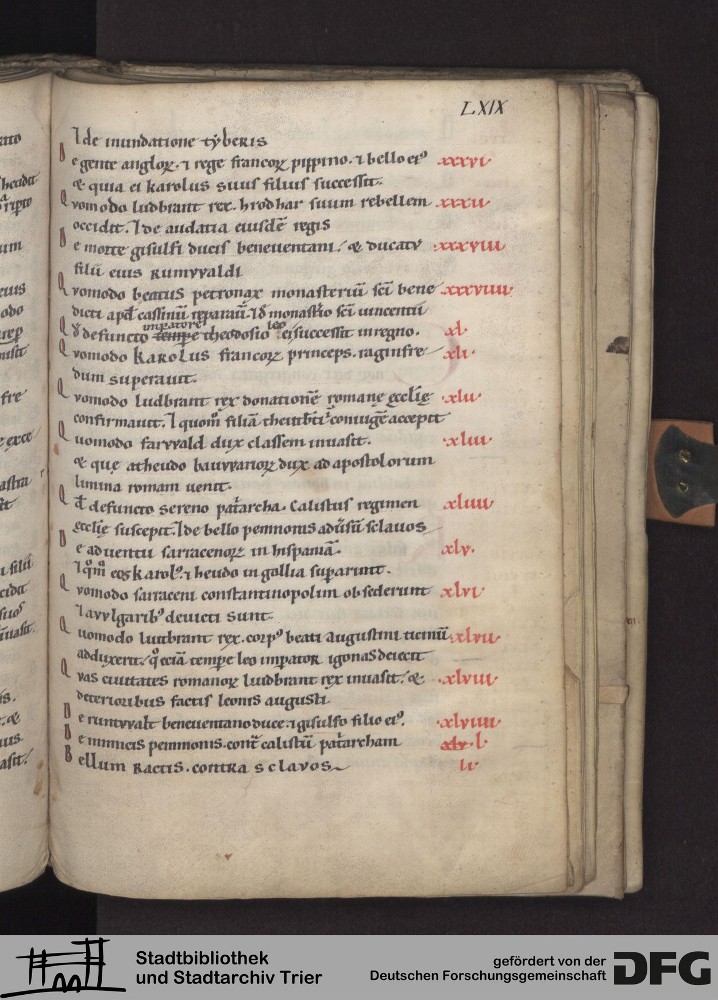 LXIX
⁊ de inundatione tẏberis
De gente angloꝝ. ⁊ rege francoꝝ pippino. ⁊ bello ei⁹ xxxvi
& quia ei karolus suus filius successit.
Quomodo ludbrant rex. hrodhar suum rebellem xxxvii
occidit. ⁊ de audatia eiusdē regis
De morte gisulfi ducis beneuentani. & ducatu xxxviii
filii eius Rumvvaldi
Quomodo beatus petronax monasteriū sc̄i bene xxxviiii
dicti apd̄ cassinū reparau̅. ⁊ d̄ monast̄io sc̄i uincentii
Qd̄ defuncto imperatore theodosio leo ei successit in regno. xl
Quomodo karolus francoꝝ princeps. raginfre xli
dum superauit.
Quomodo ludbrant rex donationē romanę ęccl̄ię xlii
confirmauit. ⁊ quom̊ filiā theutb̄ti ī coniugē accepit
Quomodo farvvald dux classem inuasit. xliii
& que atheudo bauvvarioꝝ dux ad apostolorum
limina romam uenit.
Qd̄ defuncto sereno pat̄archa. Calistus regimen xliiii
ęccl̄ię suscepit. ⁊ de bello pemmonis adūsū sclauos
De aduentu sarracenoꝝ in hispaniā. xlv
⁊ qm̊ eos karol⁹. ⁊ heudo in gollia supararunt.
Quomodo sarraceni constantinopolim obsederunt xlvi
⁊ a vvlgarib⁹ deuicti sunt.
Quomodo luitbrant rex. corp⁹ beati augustini ticinū xlvii
adduxerit. q̊ eciā tempe leo impator igonas deiecit
Quas ciuitates romanoꝝ luidbrant rex inuasit. & xlviii
deterioribus factis leonis augusti
De runtvvalt beneuentano duce. ⁊ gisulfo filio ei⁹. xlviiii
De inimicis pemmonis. cont̄ calistū pat̄archam l
Bellum Ractis. contra sclavos li
Stadtbibliothek
und Stadtarchiv Trier
gefördert von der
Deutschen Forschungsgemeinschaft
DFG